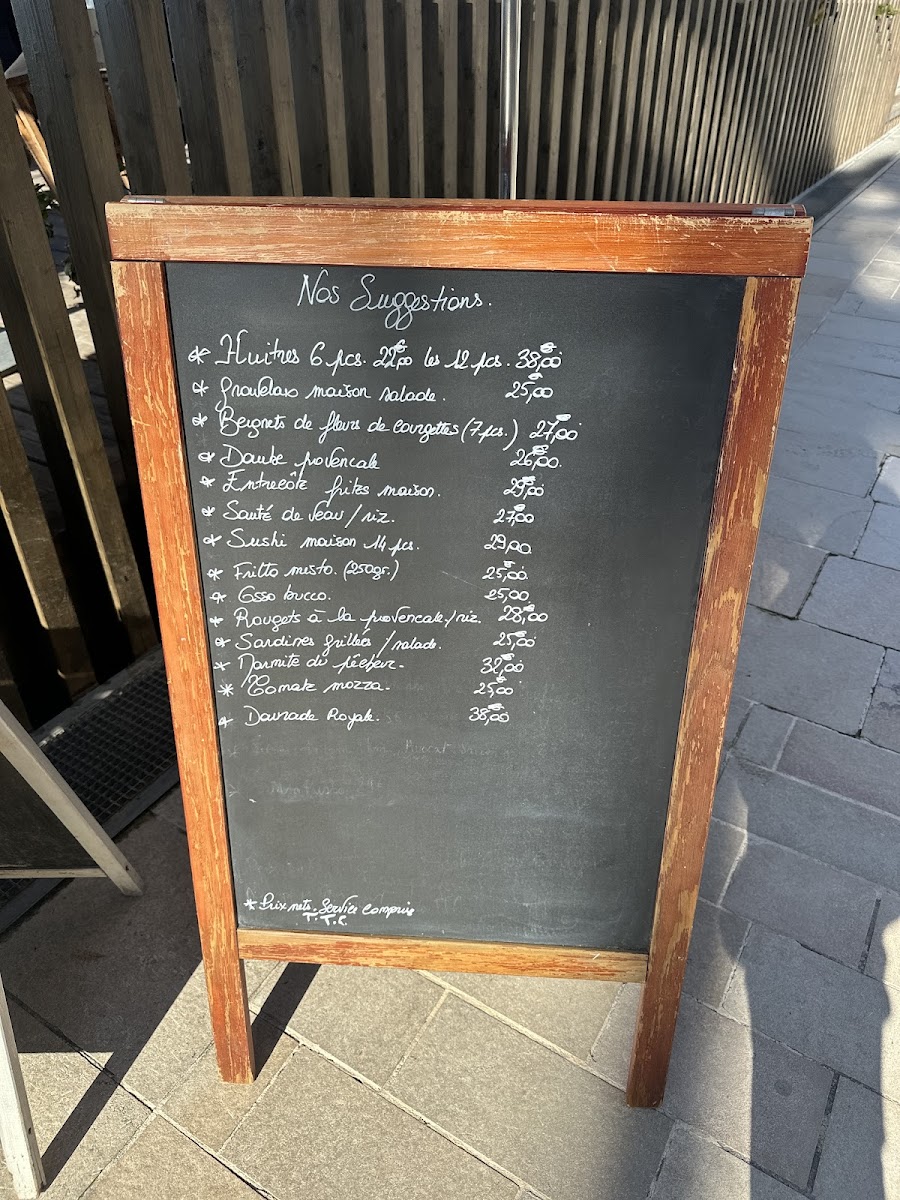 Nos Suggestions.
* Huitres 6 pcs. 22,00€ les 12 pcs. 38,00€
* gravelax maison salade. 25,00€
* Beignets de fleurs de courgettes (7 pcs.) 27,00€
* Daube provencale 26,00€.
* Entrecôte frites maison. 29,00€
* Sauté de veau / riz. 27,00€
* Sushi maison 14 pcs. 29,00€
* Fritto misto. (250gr.) 25,00€
* Osso bucco. 25,00€
* Rougets à la provencale./riz. 28,00€
* Sardines grillées / salade. 25,00€
* Marmite du pêcheur. 32,00€
* Tomate mozza. 25,00€
* Daurade Royale. 38,00€
* Prix nets. Service compris
T.T.C.